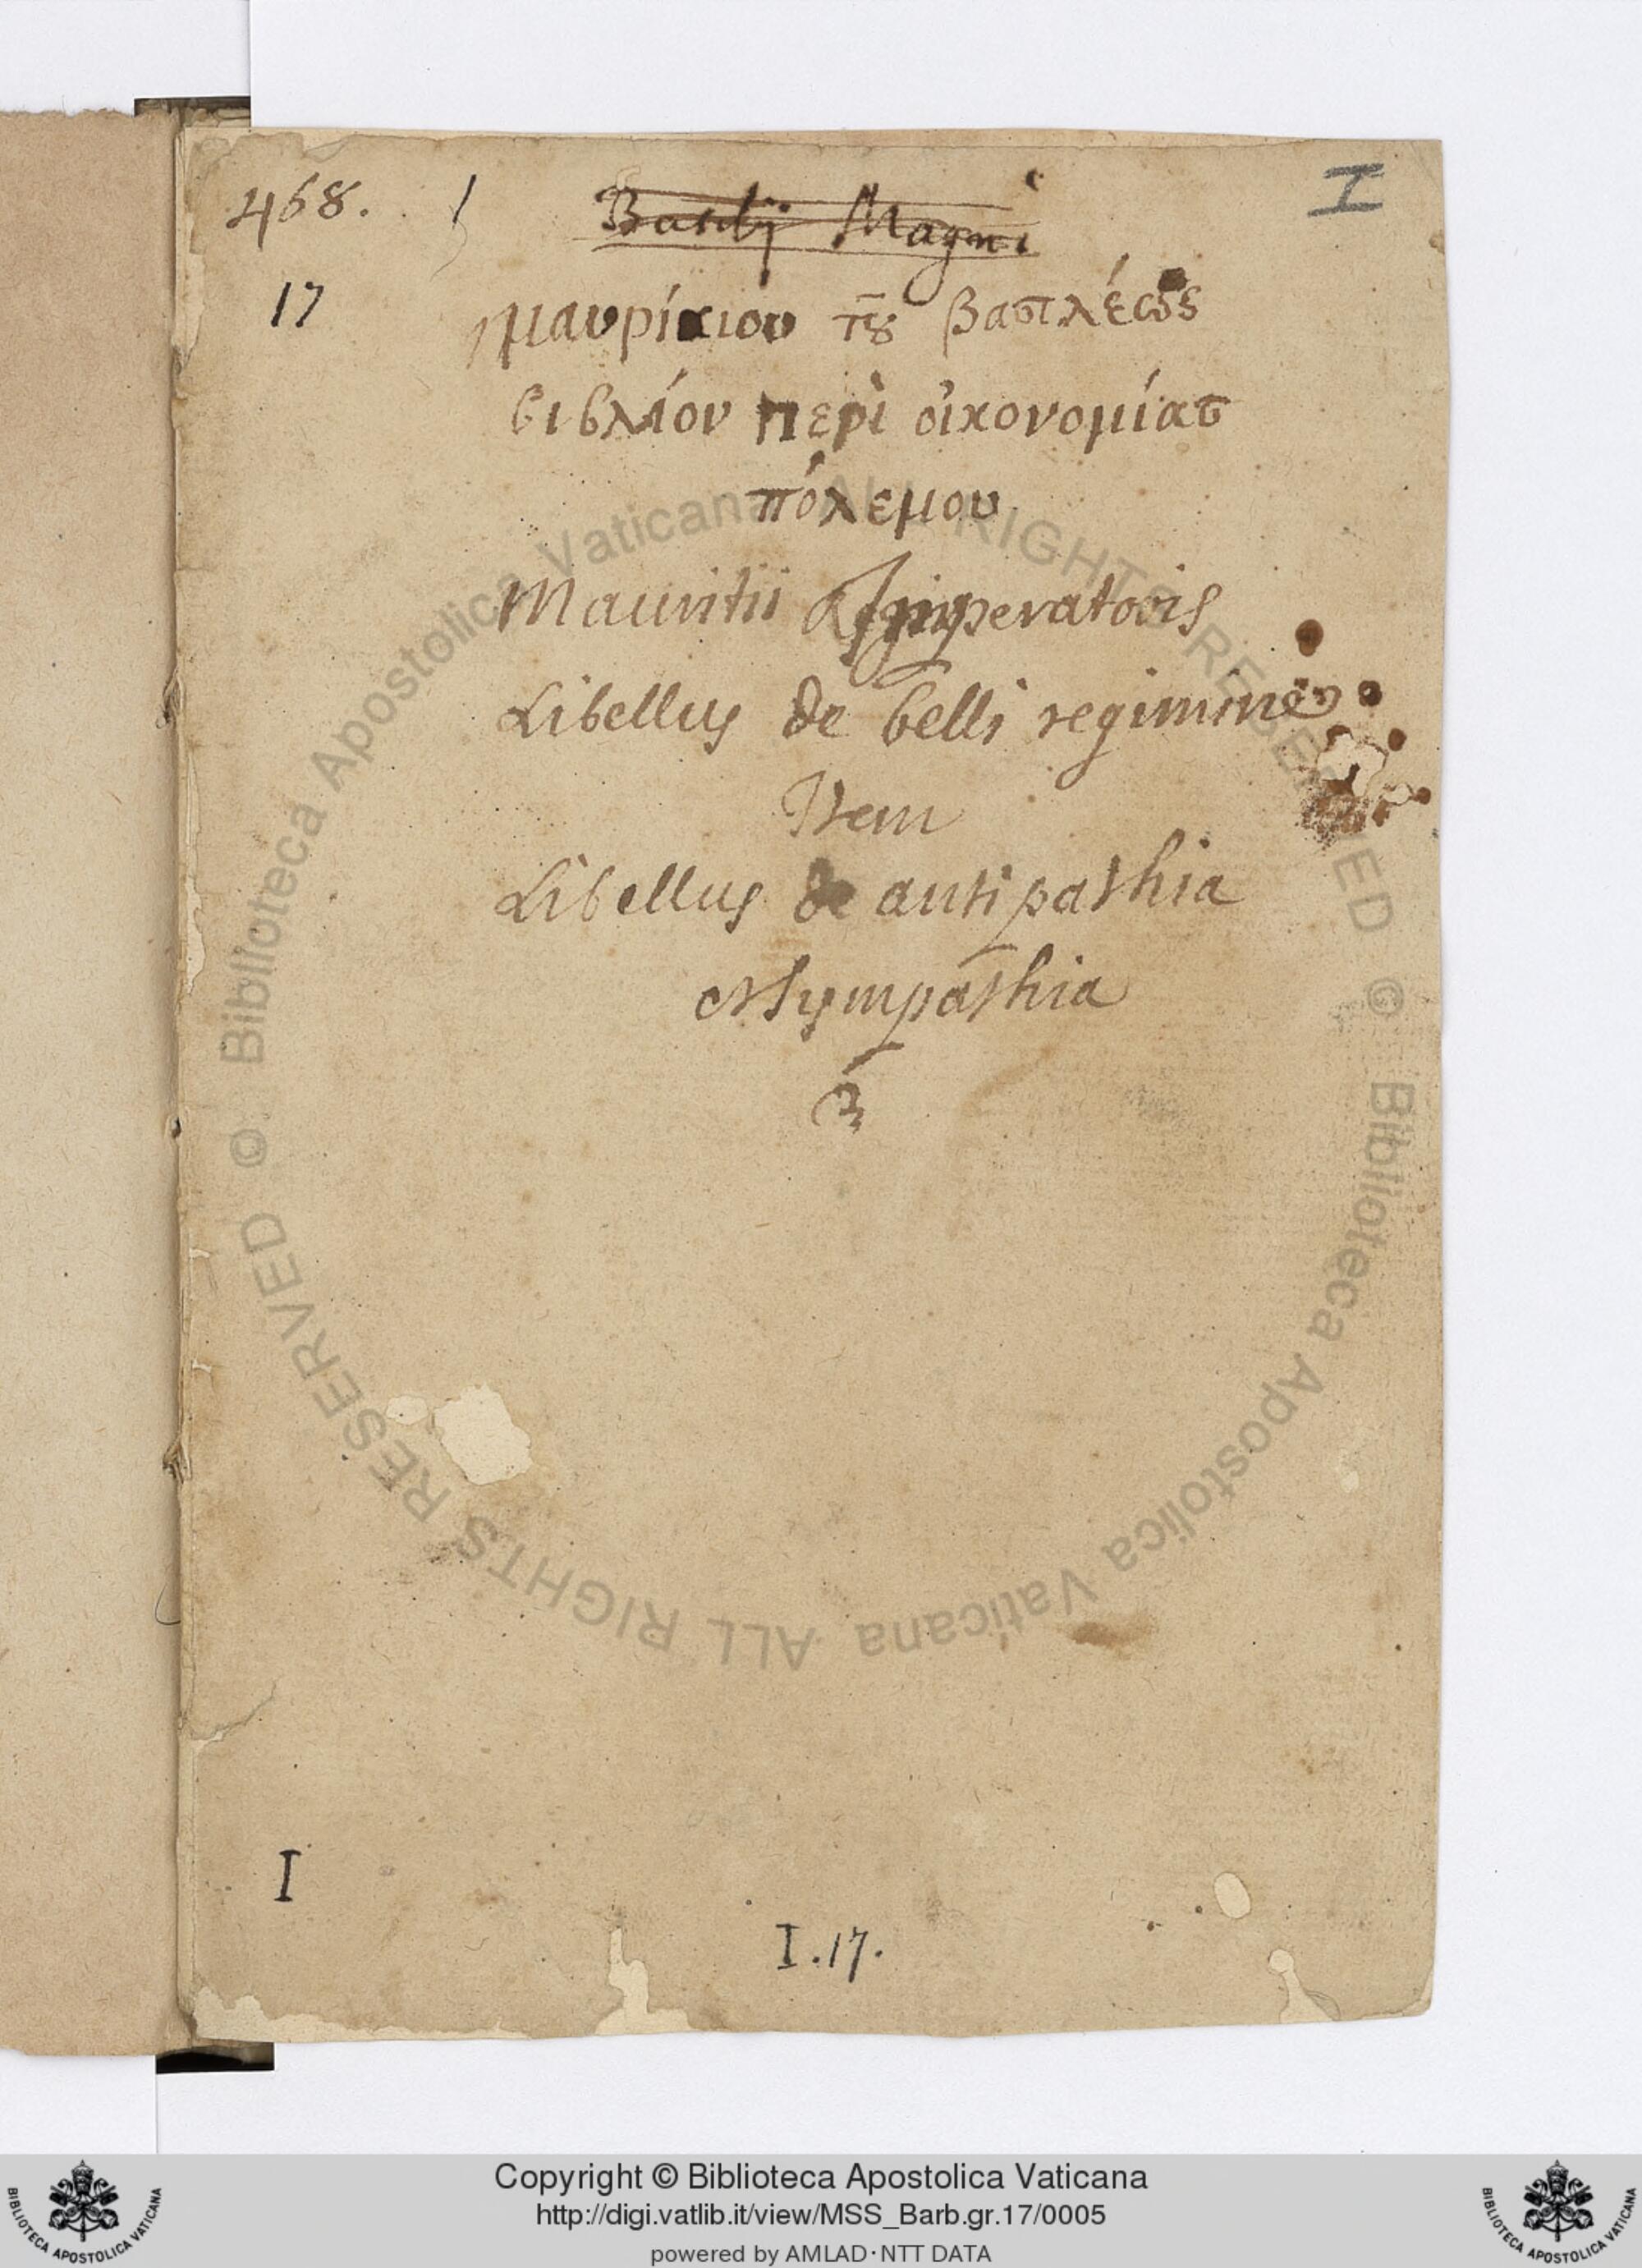 468.
Basilij Magni
I
17
μαυρίκιου τȣ͂ βασιλέως
βιβλίον περὶ οἰκονομίας
πόλεμου
Mauritii Imperatoris
Libellus de belli regimine
Item
Libellus de antipathia
et sympathia
I
I.17.
© Biblioteca Apostolica Vaticana ALL RIGHTS RESERVED
© Biblioteca Apostolica Vaticana ALL RIGHTS RESERVED
Copyright © Biblioteca Apostolica Vaticana
http://digi.vatlib.it/view/MSS_Barb.gr.17/0005
powered by AMLAD·NTT DATA
BIBLIOTECA APOSTOLICA VATICANA
BIBLIOTECA APOSTOLICA VATICANA